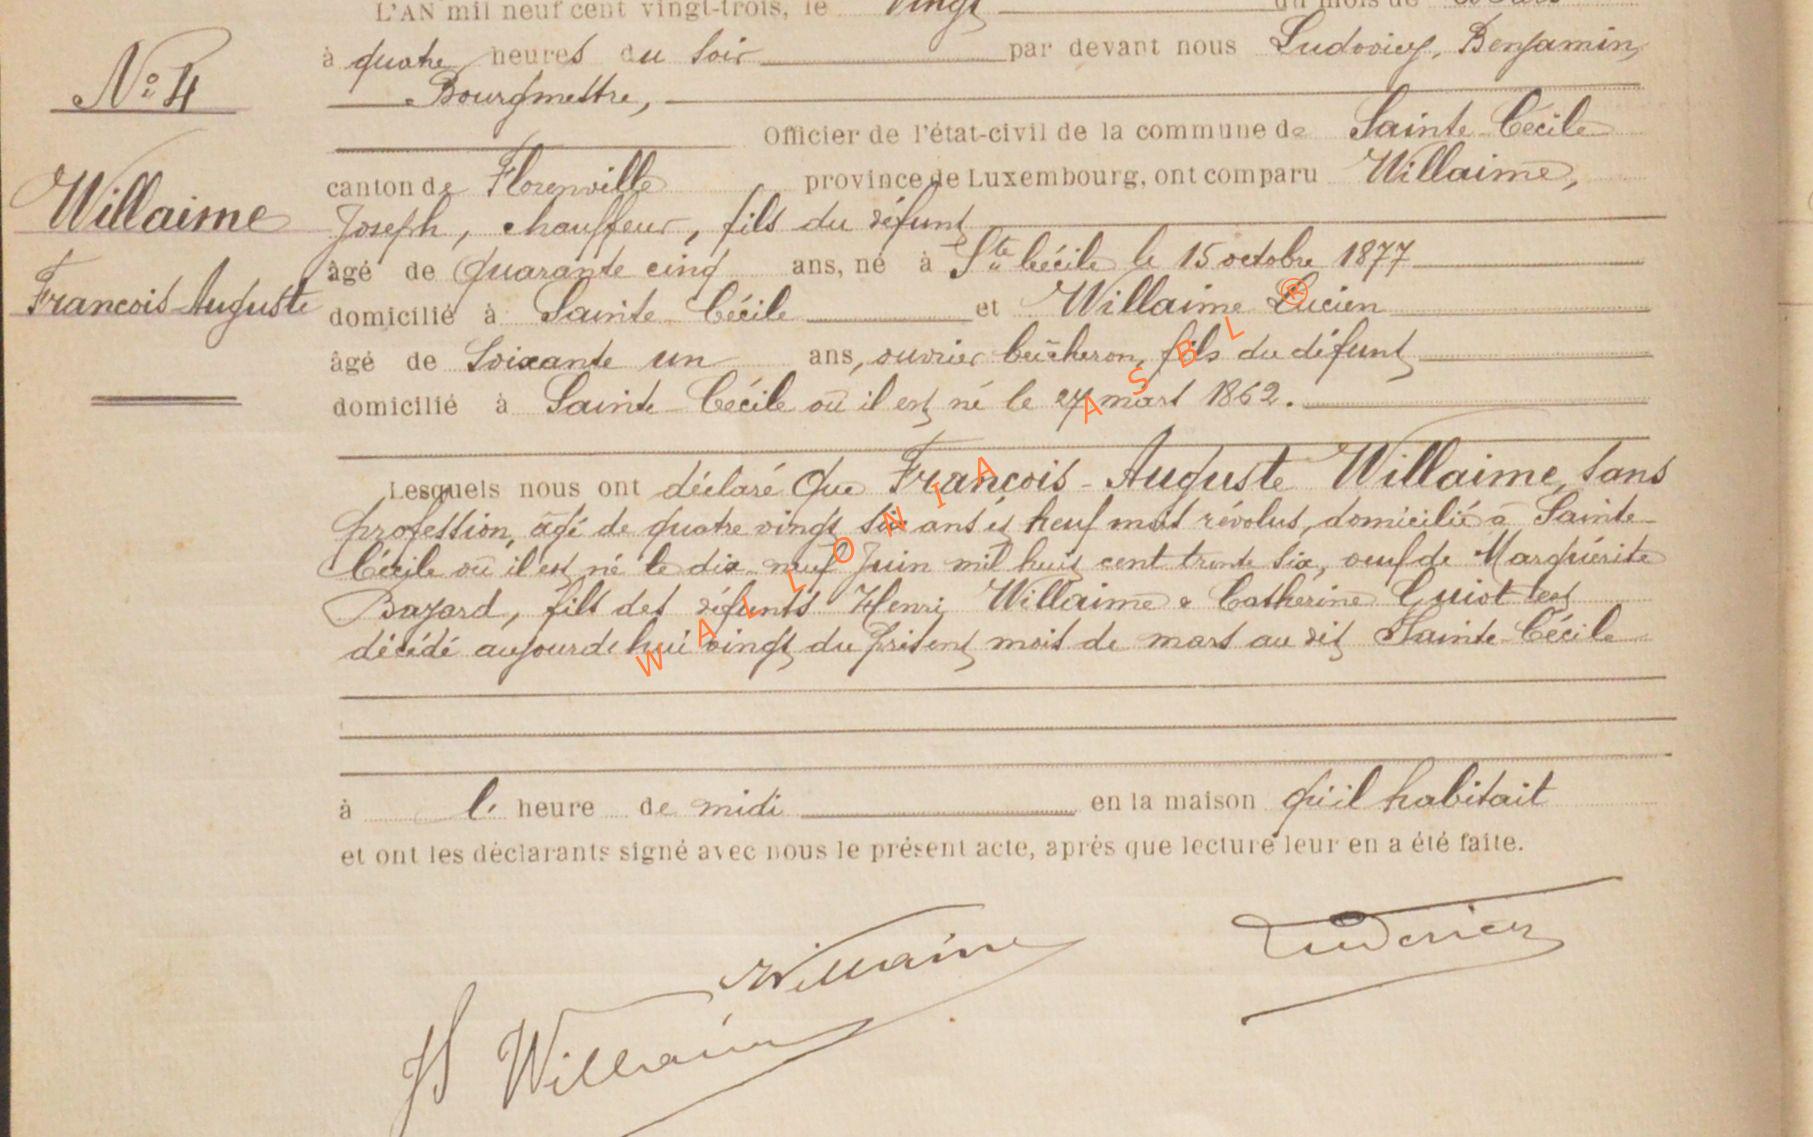 L'AN mil neuf cent vingt-trois, le vingt du mois de Mars
à quatre heures du soir par devant nous Ludovicy, Benjamin,
N° 4
Bourgmestre,
Officier de l'état-civil de la commune de Sainte-Cécile
canton de Florenville province de Luxembourg, ont comparu Willaime,
Willaime
Joseph, chauffeur, fils du défunt
âgé de quarante cinq ans, né à Ste Cécile le 15 octobre 1877
François-Auguste
domicilié à Sainte Cécile et Willaime Lucien
âgé de soixante un ans, ouvrier bûcheron, fils du défunt
domicilié à Sainte-Cécile où il est né le 27 mars 1862.
Lesquels nous ont déclaré que François-Auguste Willaime, sans
profession, âgé de quatre vingt six ans et neuf mois révolus, domicilié à Sainte-
Cécile où il est né le dix-neuf Juin mil huit cent trente six, veuf de Marguérite
Bazard, fils des défunts Henri Willaime & Catherine Guiot est
décédé aujourd'hui vingt du présent mois de mars au dit Sainte-Cécile
à l' heure de midi en la maison qu'il habitait
et ont les déclarants signé avec nous le présent acte, après que lecture leur en a été faite.
Willaime
Ludovicy
JS Willaime
WALLONIA ASBL ®